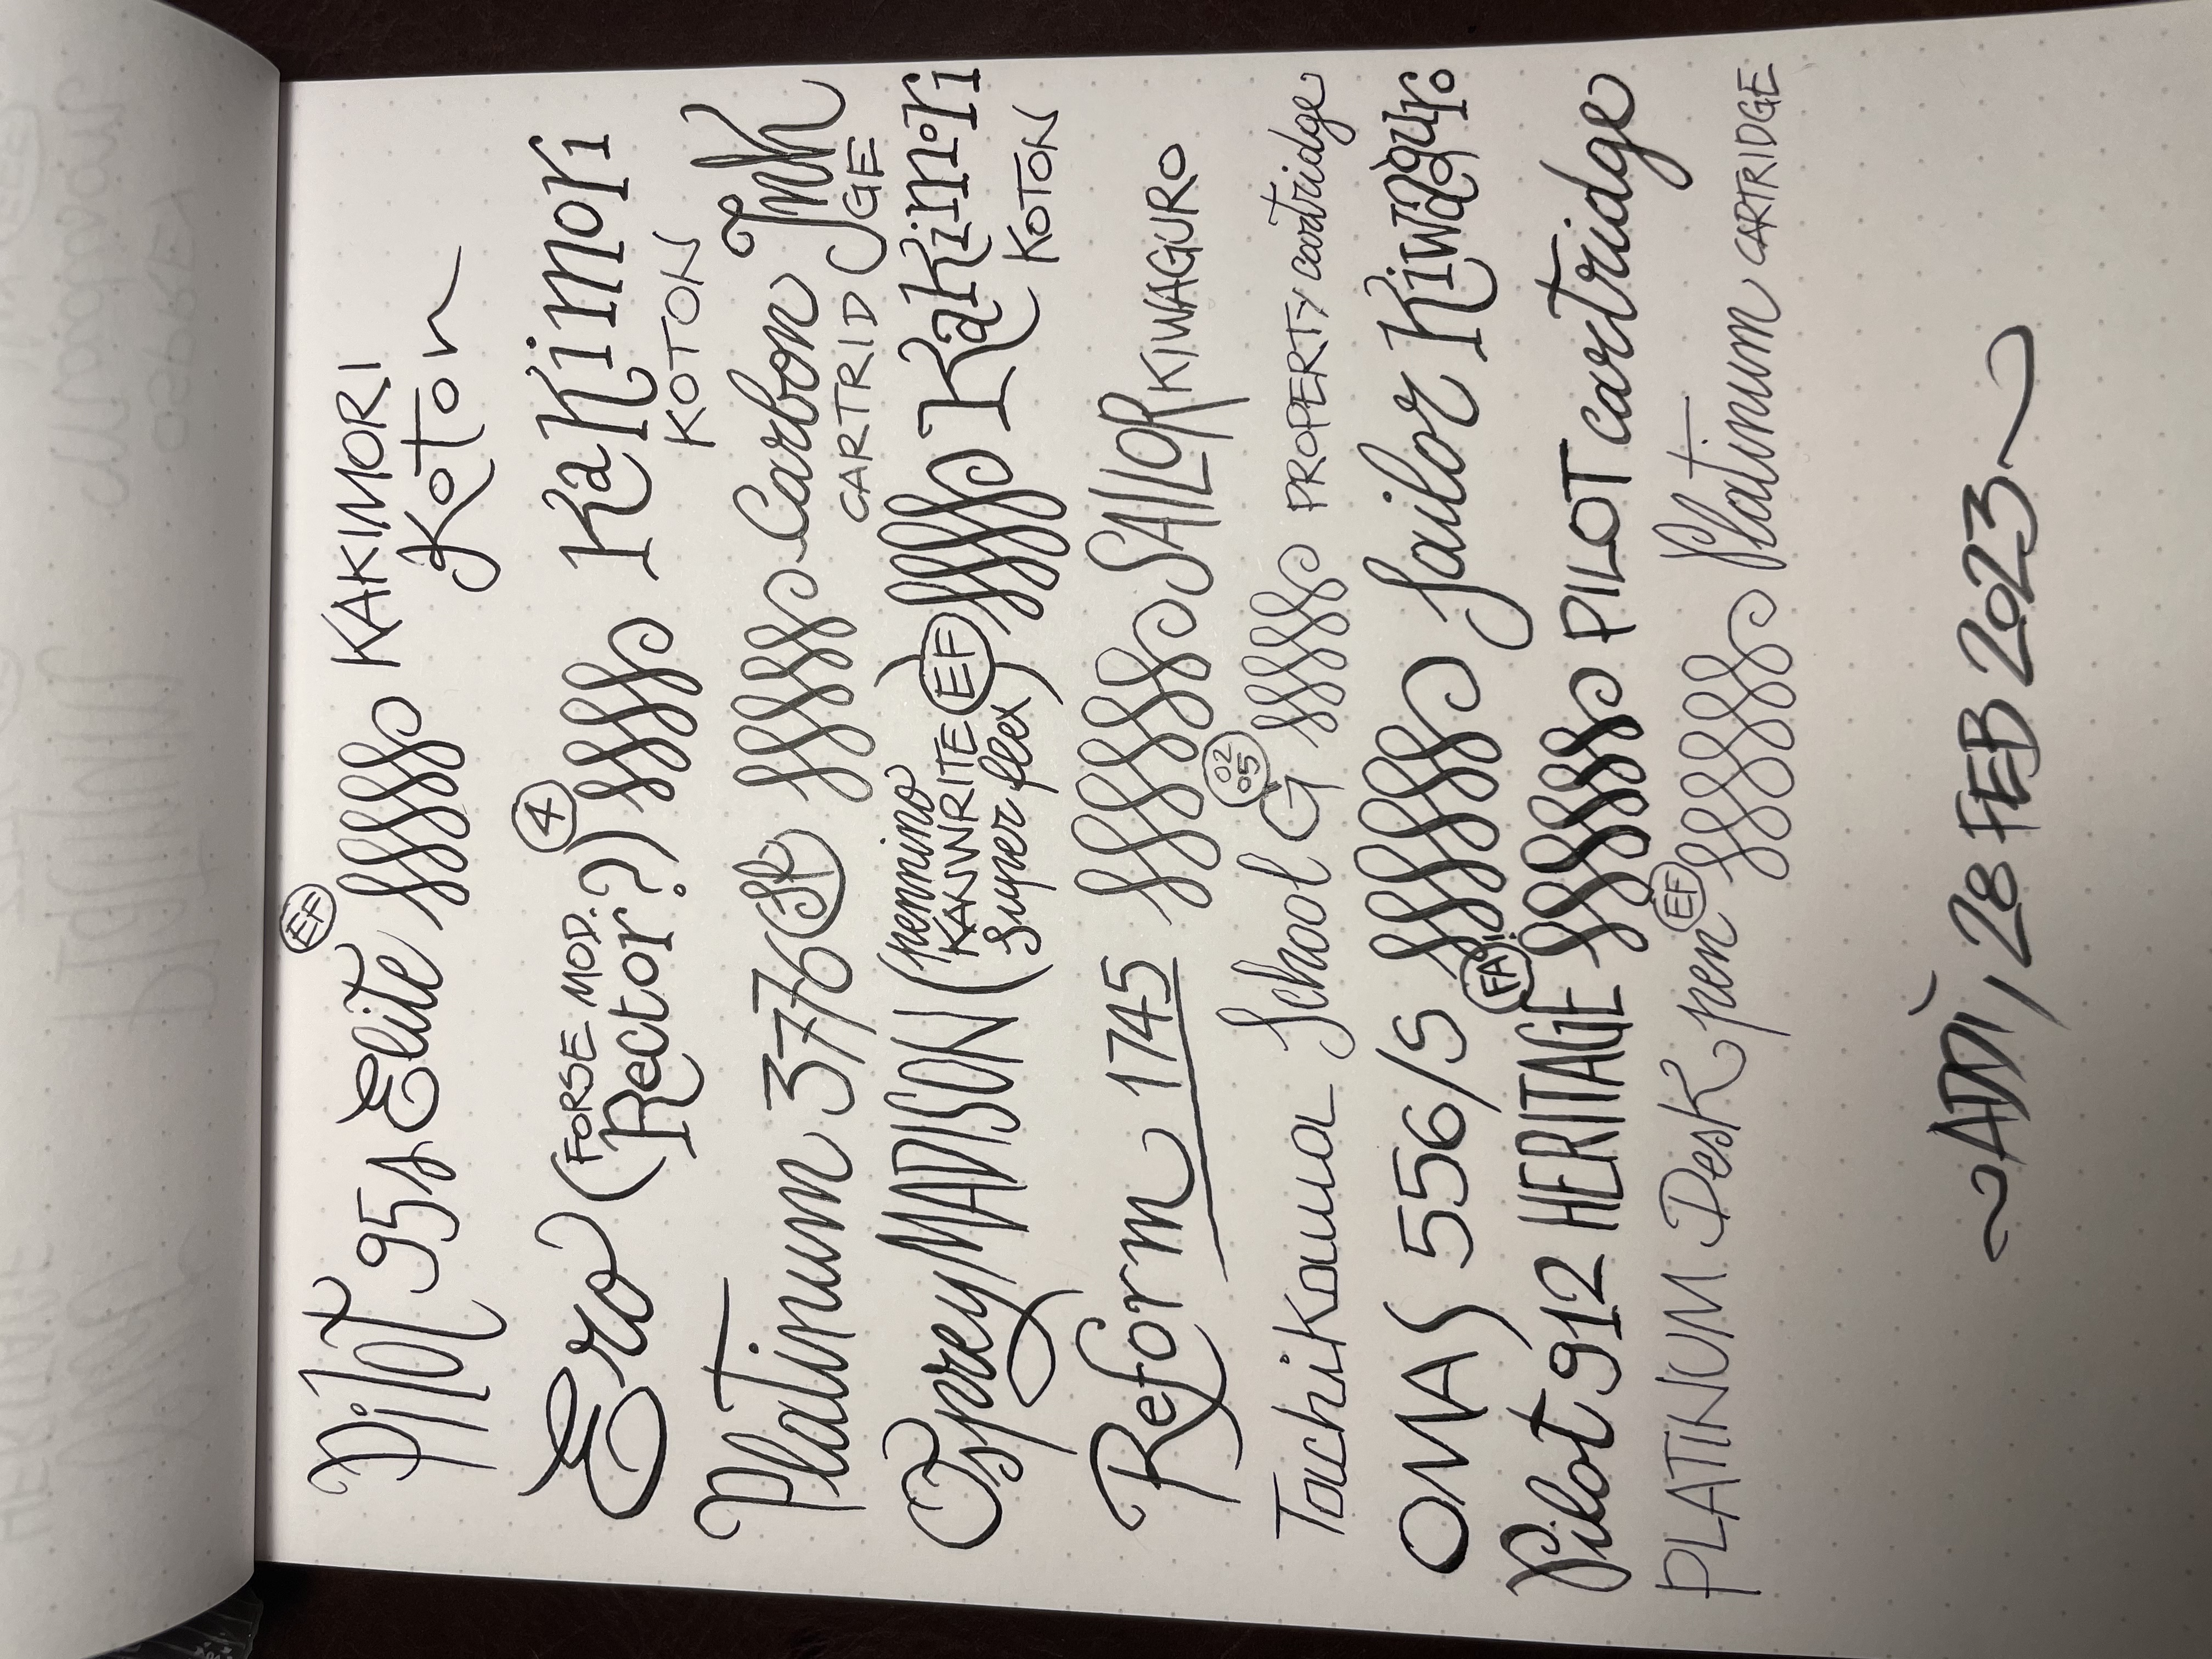 Pilot 95s Elite EF KAKIMORI
Koton
Ero (FORSE MOD. 4
Rector?) Kakimori
KOTON
Platinum 3776 SF Carbon Ink
CARTRIDGE
Osprey MADISON (pennino
KANWRITE EF
Super flex) Kakimori
KOTON
Reform 1745 SAILOR KIWAGURO
Tachikawa School G 02 05 PROPERTY cartridge
OMAS 556/S Sailor Kiwaguro
Pilot 912 HERITAGE FA! PILOT cartridge
PLATINUM Desk pen EF Platinum CARTRIDGE
ADDI', 28 FEB 2023